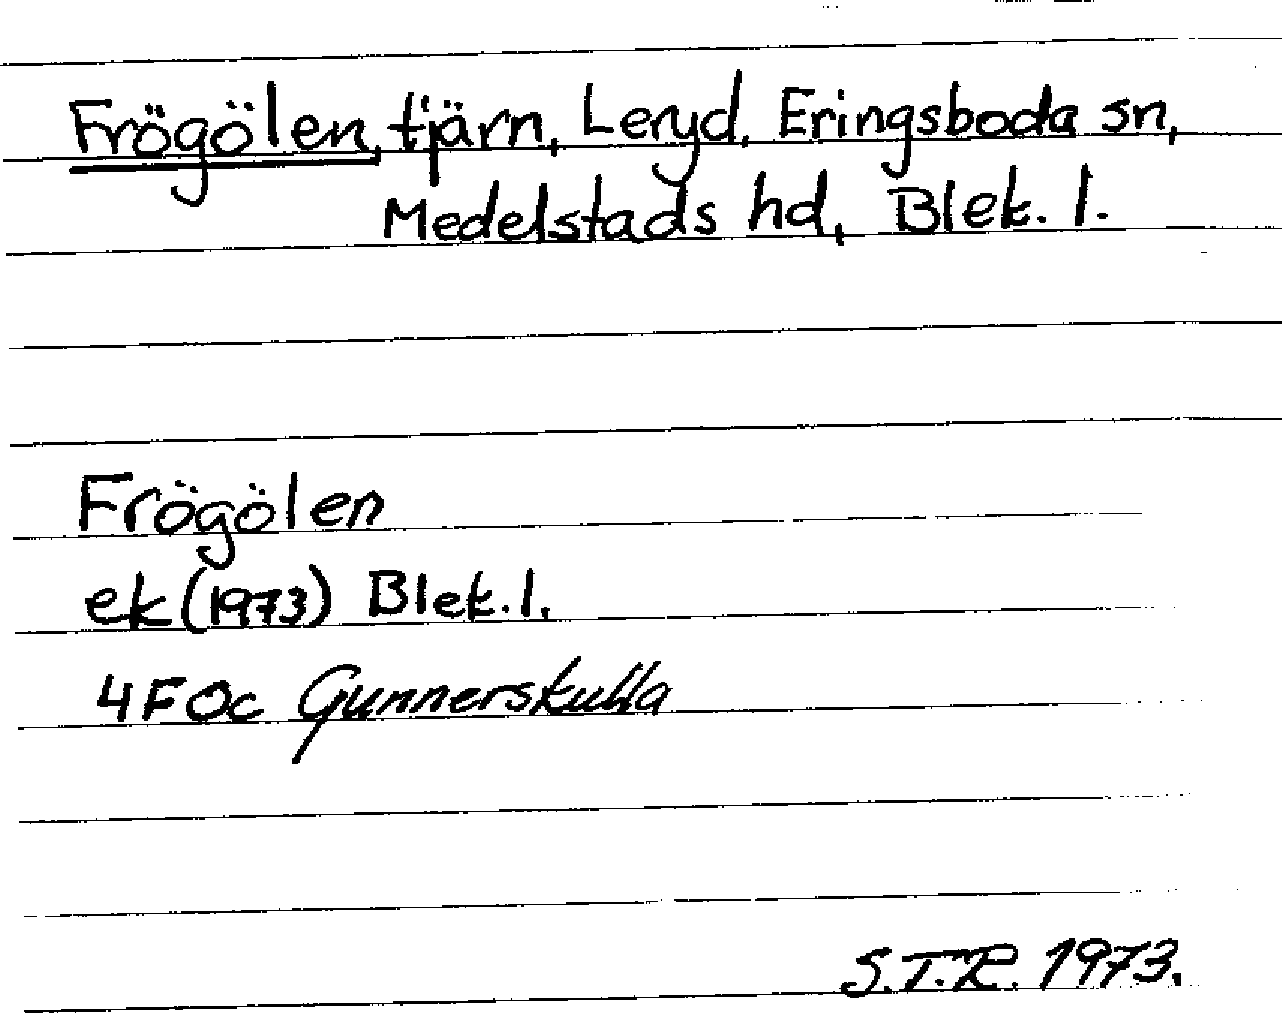 Frögölen, tjärn, Leryd, Eringsboda sn,
Medelstads hd, Blek. l.
Frögölen
ek (1973) Blek. l.
4F0c Gunnerskulla
S.T.R. 1973.